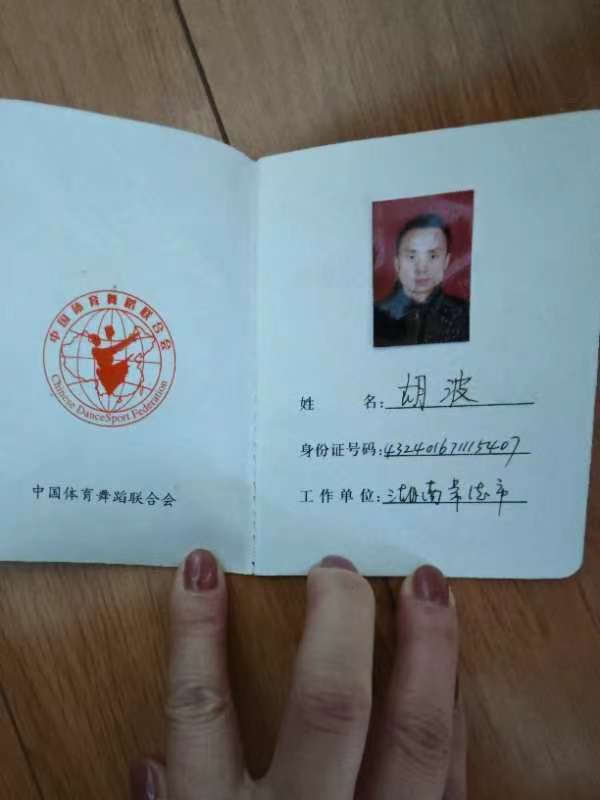 中国体育舞蹈联合会
Chinese DanceSport Federation
中国体育舞蹈联合会
姓 名: 胡波
身份证号码: 432401671115407
工作单位: 湖南常德市